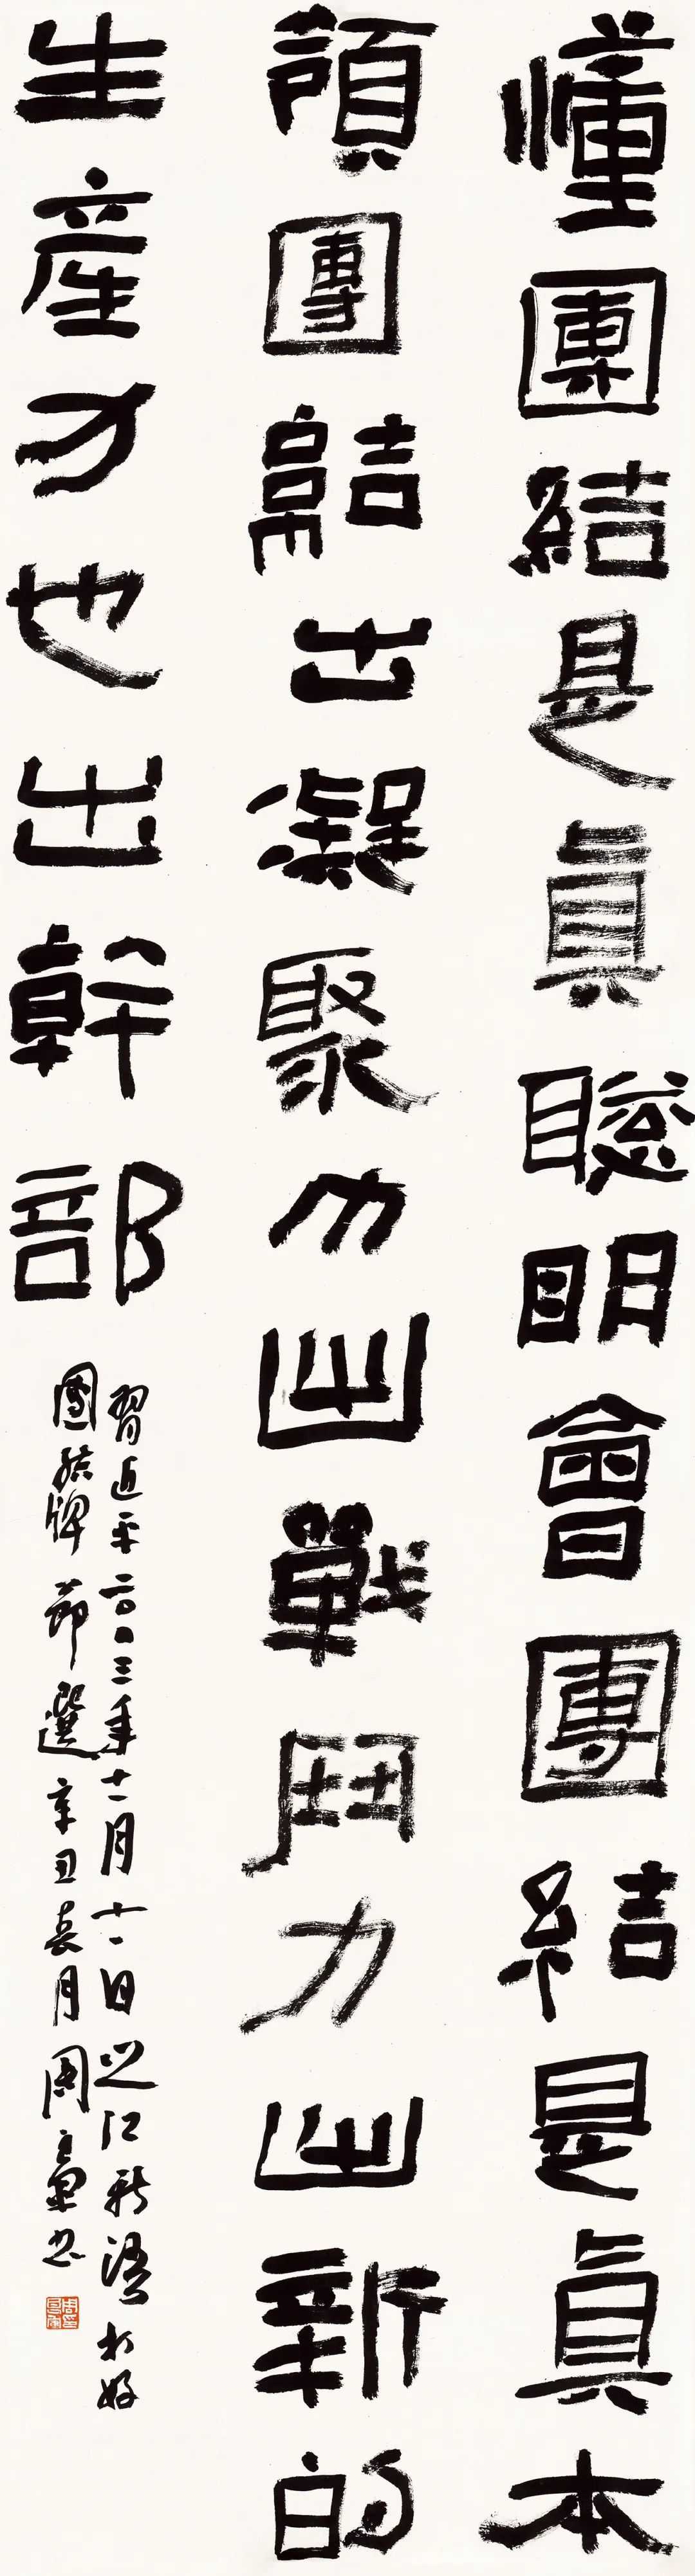 懂團結是真聰明會團結是真本
領團結出凝聚力出戰鬥力出新的
生產力也出幹部
習近平二〇〇三年十一月十一日之江新語打好
團結牌節選辛丑春月周